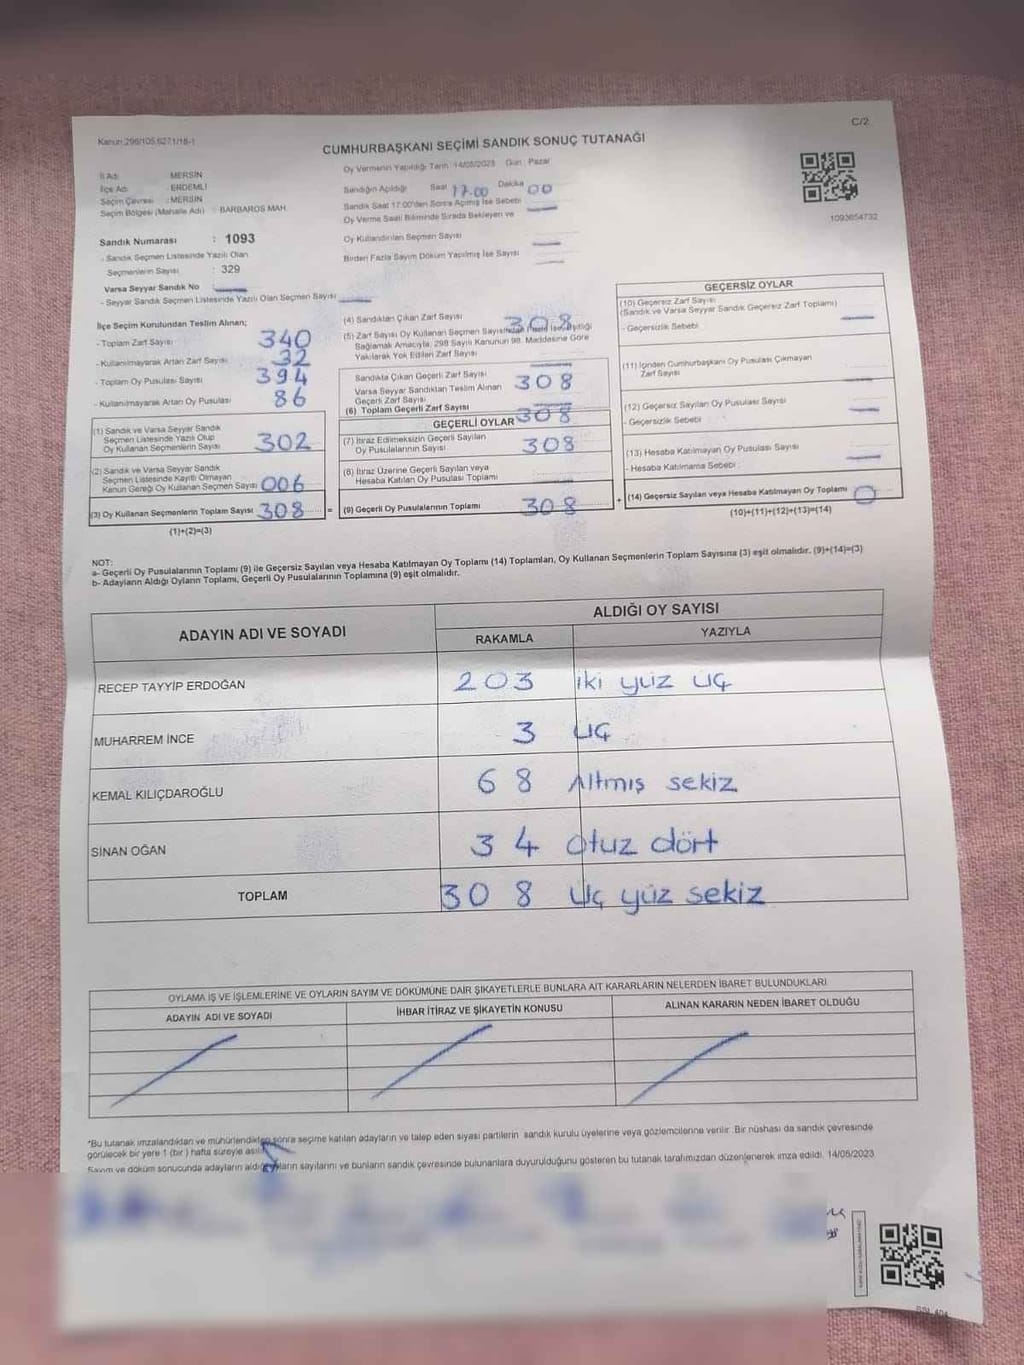 Kanun:298/105,6271/18-1
C/2
CUMHURBAŞKANI SEÇİMİ SANDIK SONUÇ TUTANAĞI
Oy Vermenin Yapıldığı Tarih :14/05/2023 Gün : Pazar
İl Adı : MERSİN
İlçe Adı : ERDEMLİ
Seçim Çevresi : MERSİN
Seçim Bölgesi (Mahalle Adı) : BARBAROS MAH
Sandığın Açıldığı Saat 17.00 Dakika 00
Sandık Saat 17:00'den Sonra Açılmış İse Sebebi
Oy Verme Saati Bitiminde Sırada Bekleyen ve
Oy Kullandırılan Seçmen Sayısı
Birden Fazla Sayım Döküm Yapılmış İse Sayısı
1093654732
Sandık Numarası : 1093
- Sandık Seçmen Listesinde Yazılı Olan
Seçmenlerin Sayısı : 329
Varsa Seyyar Sandık No
- Seyyar Sandık Seçmen Listesinde Yazılı Olan Seçmen Sayısı
İlçe Seçim Kurulundan Teslim Alınan;
- Toplam Zarf Sayısı 340
- Kullanılmayarak Artan Zarf Sayısı 32
- Toplam Oy Pusulası Sayısı 394
- Kullanılmayarak Artan Oy Pusulası 86
(1) Sandık ve Varsa Seyyar Sandık
Seçmen Listesinde Yazılı Olup
Oy Kullanan Seçmenlerin Sayısı 302
(2) Sandık ve Varsa Seyyar Sandık
Seçmen Listesinde Kayıtlı Olmayan
Kanun Gereği Oy Kullanan Seçmen Sayısı 006
(3) Oy Kullanan Seçmenlerin Toplam Sayısı 308 =
(1)+(2)=(3)
(4) Sandıktan Çıkan Zarf Sayısı 308
(5) Zarf Sayısı Oy Kullanan Seçmen Sayısından Fazla İse, Eşitliği
Sağlamak Amacıyla, 298 Sayılı Kanunun 98. Maddesine Göre
Yakılarak Yok Edilen Zarf Sayısı
Sandıkta Çıkan Geçerli Zarf Sayısı 308
Varsa Seyyar Sandıktan Teslim Alınan
Geçerli Zarf Sayısı
(6) Toplam Geçerli Zarf Sayısı 308
GEÇERLİ OYLAR
(7) İtiraz Edilmeksizin Geçerli Sayılan
Oy Pusulalarının Sayısı 308
(8) İtiraz Üzerine Geçerli Sayılan veya
Hesaba Katılan Oy Pusulası Toplamı
(9) Geçerli Oy Pusulalarının Toplamı 308 +
GEÇERSİZ OYLAR
(10) Geçersiz Zarf Sayısı
(Sandık ve Varsa Seyyar Sandık Geçersiz Zarf Toplamı)
- Geçersizlik Sebebi
(11) İçinden Cumhurbaşkanı Oy Pusulası Çıkmayan
Zarf Sayısı
(12) Geçersiz Sayılan Oy Pusulası Sayısı
- Geçersizlik Sebebi
(13) Hesaba Katılmayan Oy Pusulası Sayısı
- Hesaba Katılmama Sebebi
(14) Geçersiz Sayılan veya Hesaba Katılmayan Oy Toplamı 0
(10)+(11)+(12)+(13)=(14)
NOT:
a- Geçerli Oy Pusulalarının Toplamı (9) ile Geçersiz Sayılan veya Hesaba Katılmayan Oy Toplamı (14) Toplamları, Oy Kullanan Seçmenlerin Toplam Sayısına (3) eşit olmalıdır. (9)+(14)=(3)
b- Adayların Aldığı Oyların Toplamı, Geçerli Oy Pusulalarının Toplamına (9) eşit olmalıdır.
ADAYIN ADI VE SOYADI
ALDIĞI OY SAYISI
RAKAMLA YAZIYLA
RECEP TAYYİP ERDOĞAN 203 iki yüz üç
MUHARREM İNCE 3 üç
KEMAL KILIÇDAROĞLU 68 Altmış sekiz
SİNAN OĞAN 34 otuz dört
TOPLAM 308 üç yüz sekiz
OYLAMA İŞ VE İŞLEMLERİNE VE OYLARIN SAYIM VE DÖKÜMÜNE DAİR ŞİKAYETLERLE BUNLARA AİT KARARLARIN NELERDEN İBARET BULUNDUKLARI
ADAYIN ADI VE SOYADI
İHBAR İTİRAZ VE ŞİKAYETİN KONUSU
ALINAN KARARIN NEDEN İBARET OLDUĞU
*Bu tutanak imzalandıktan ve mühürlendikten sonra seçime katılan adayların ve talep eden siyasi partilerin sandık kurulu üyelerine veya gözlemcilerine verilir. Bir nüshası da sandık çevresinde
görülecek bir yere 1 (bir) hafta süreyle asılır.
Sayım ve döküm sonucunda adayların aldığı oyların sayılarını ve bunların sandık çevresinde bulunanlara duyurulduğunu gösteren bu tutanak tarafımızdan düzenlenerek imza edildi. 14/05/2023